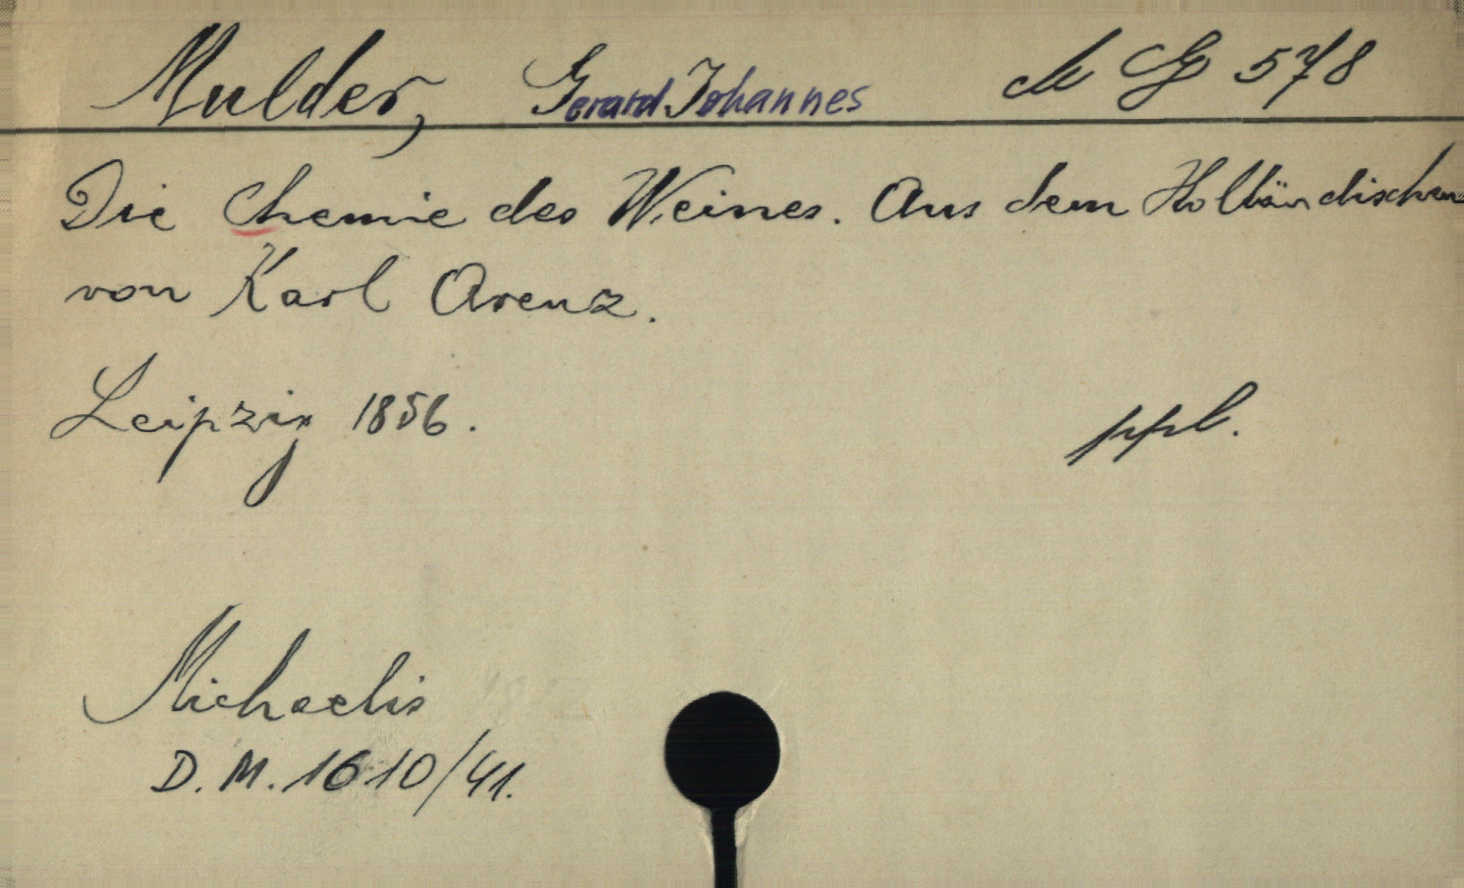 Mulder, Gerard Johannes M G 578
Die Chemie des Weines. Aus dem Holländischen
von Karl Arenz.
Leipzig 1856. ppb.
Michaelis
D.M. 1610/41.